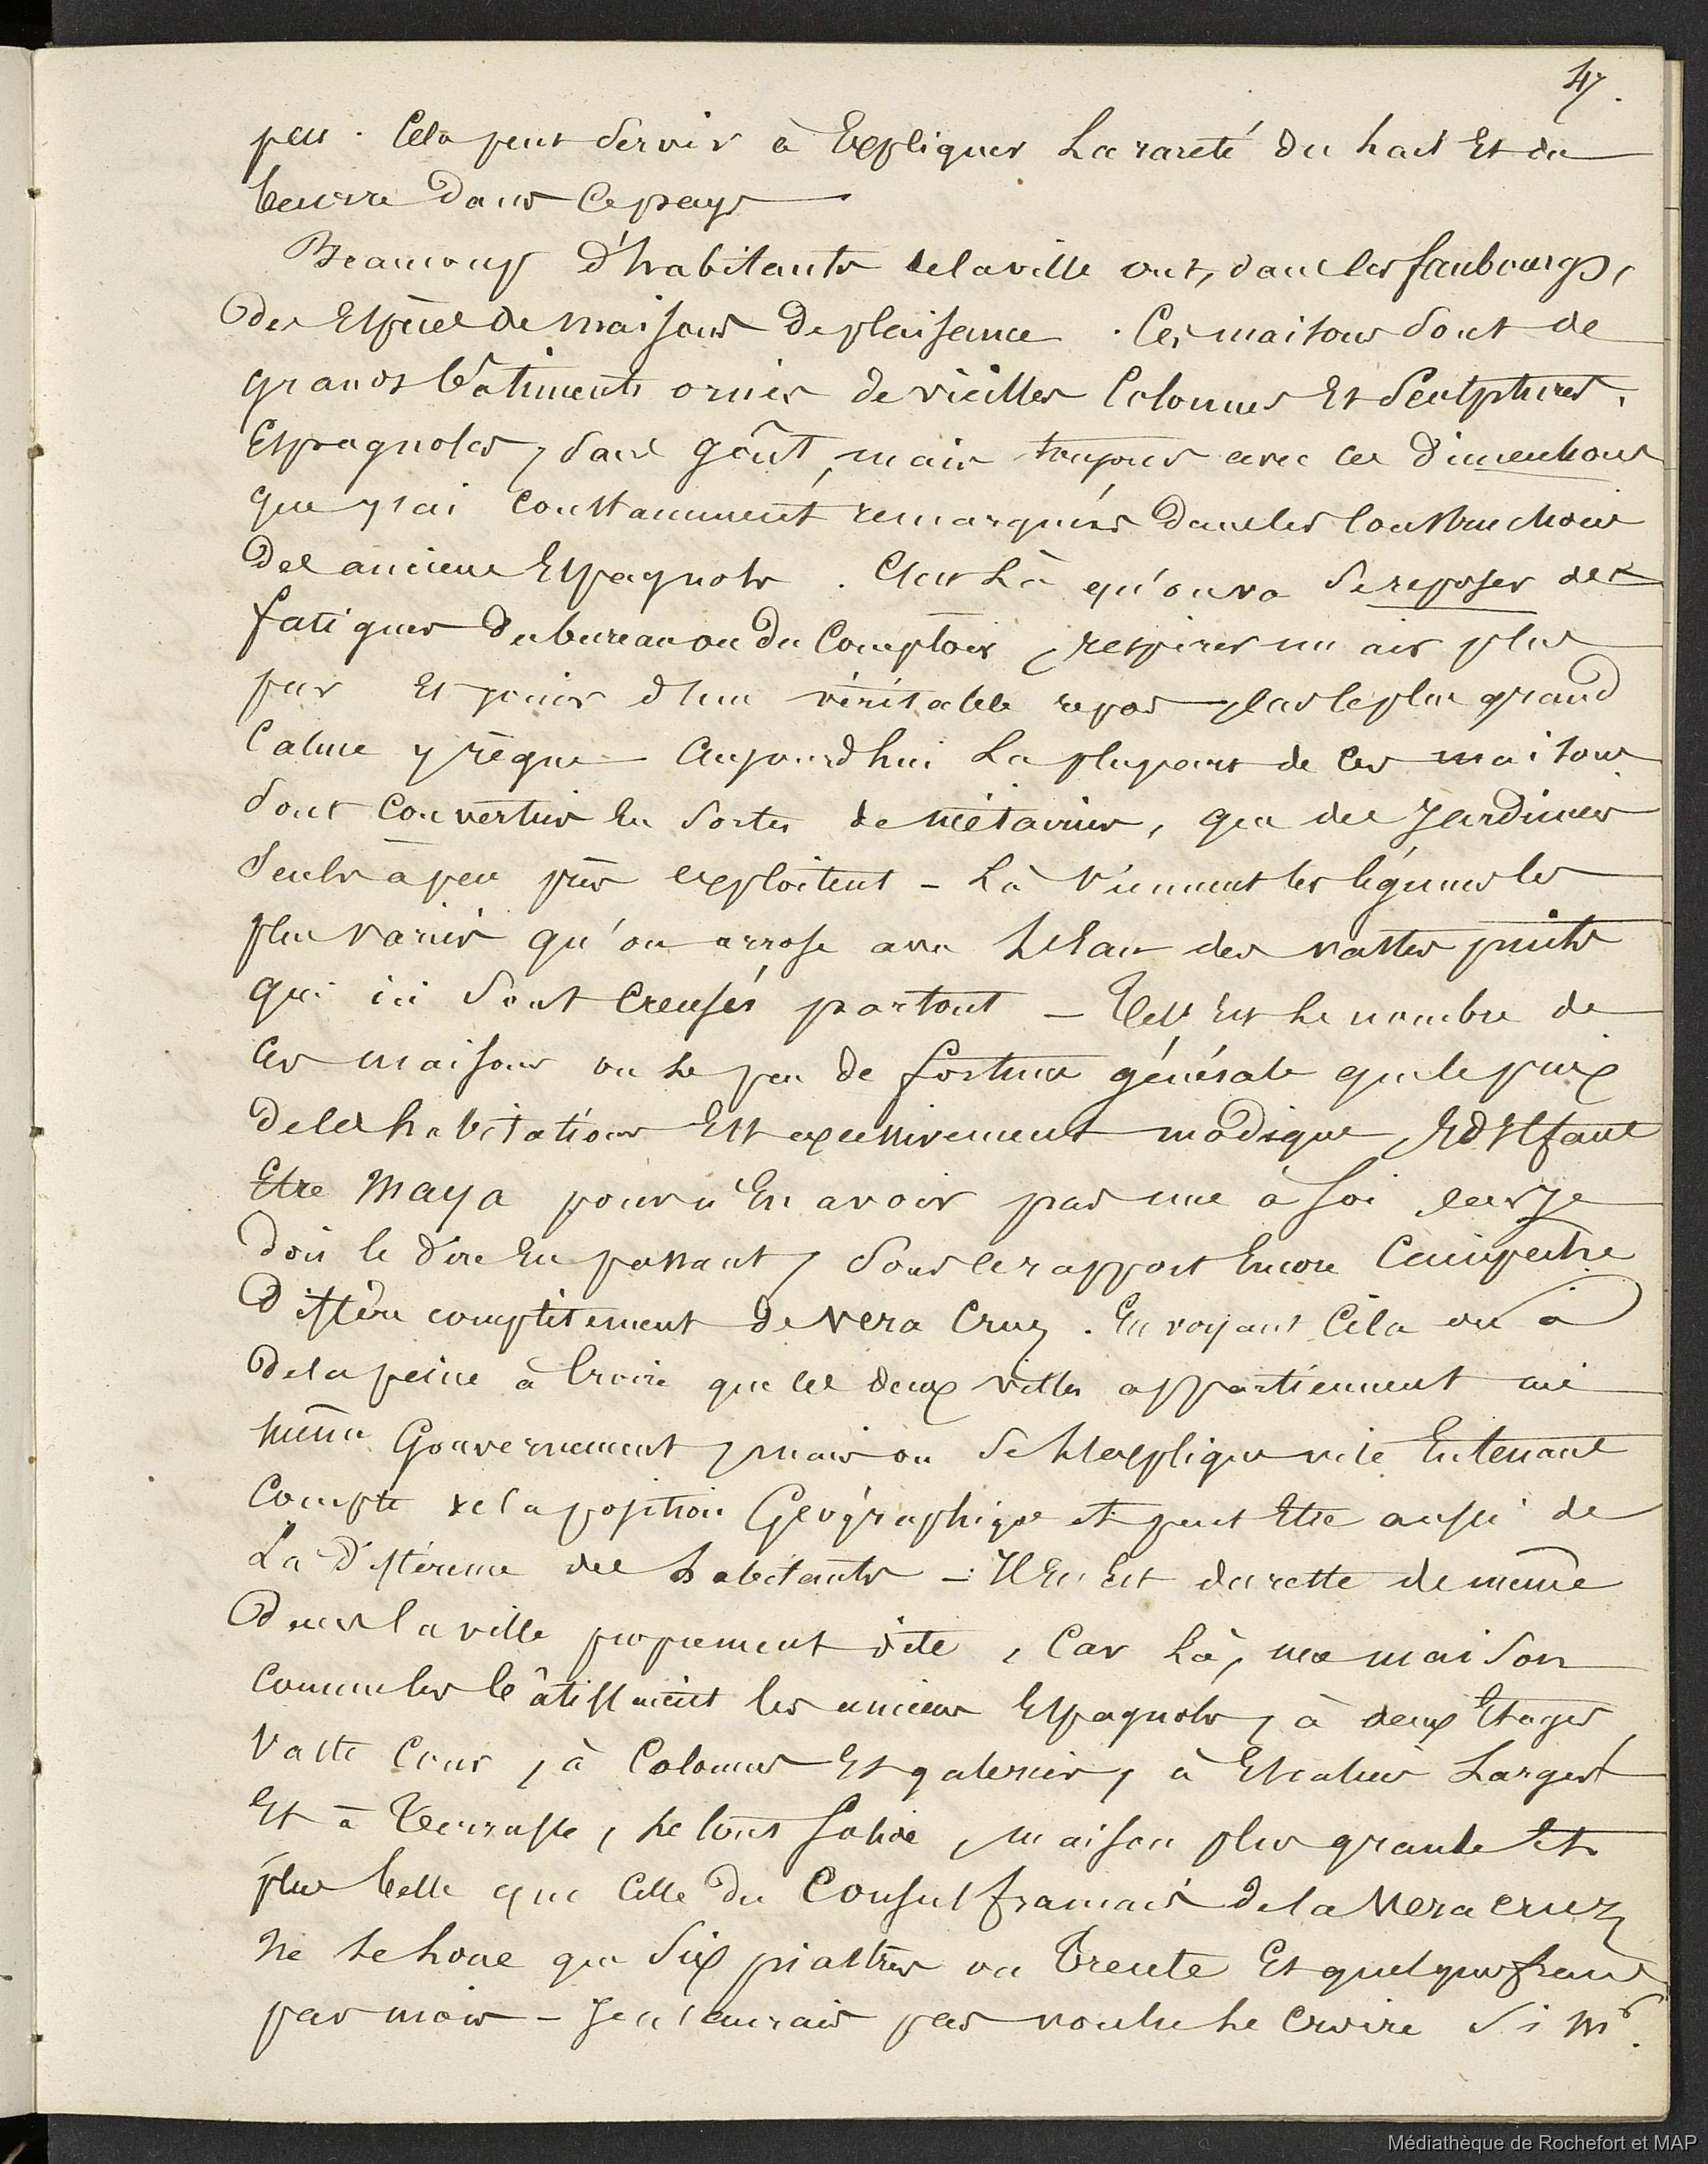 47.
peu. Cela peut servir à Expliquer La rareté du Lait Et du
beurre dans Ce pays
Beaucoup d'habitants de la ville ont, dans les faubourgs,
des Espèces de maisons de plaisance. Ces maisons sont de
grands bâtiments ornés de vieilles Colonnes Et Sculptures,
Espagnoles, sans goût, mais toujours avec ces dimensions
que j'ai Constamment remarquées dans les Constructions
des anciens Espagnols. C'est Là qu'on va se reposer des
fatigues du bureau ou du Comptoir, respirer un air plus
pur Et jouir d'un véritable repos, car le plus grand
Calme y règne - Aujourd'hui La plupart de Ces maisons
sont Converties En sortes de métairies, que des Jardiniers
seuls à peu près exploitent - Là viennent les légumes les
plus variés qu'on arrose avec L'Eau des vastes puits
qui ici sont Creusés partout - Tel Est Le nombre de
Ces maisons ou Le peu de fortune générale que le prix
de les habitations Est excessivement modique, Et Il faut
Etre Maya pour n'En avoir pas une à soi, car je
dois le dire En passant, sous le rapport Encore Campêche
diffère complètement de Vera Cruz. En voyant Cela on a
de la peine à Croire que les deux villes appartiennent au
même Gouvernement, mais on se L'explique vite En tenant
Compte de la position Géographique et peut Etre aussi de
La différence des habitants - Il En Est du reste de même
dans la ville proprement dite, Car Là, une maison
Comme les bâtissaient les anciens Espagnols, à deux Etages,
Vaste Cour, à Colonnes Et galeries, à Escaliers Larges
Et à Terrasse, Le tout solide, maison plus grande Et
plus belle que Celle du Consul français de la Vera Cruz
ne se Loue que Six piastres ou Trente Et quelques francs
par mois - Je n'aurais pas voulu Le Croire si Mr.
Médiathèque de Rochefort et MAP